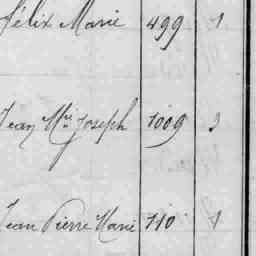 félix Marie 499 1
Jean Mie Joseph 1009 3
Jean Pierre Marie 110 1